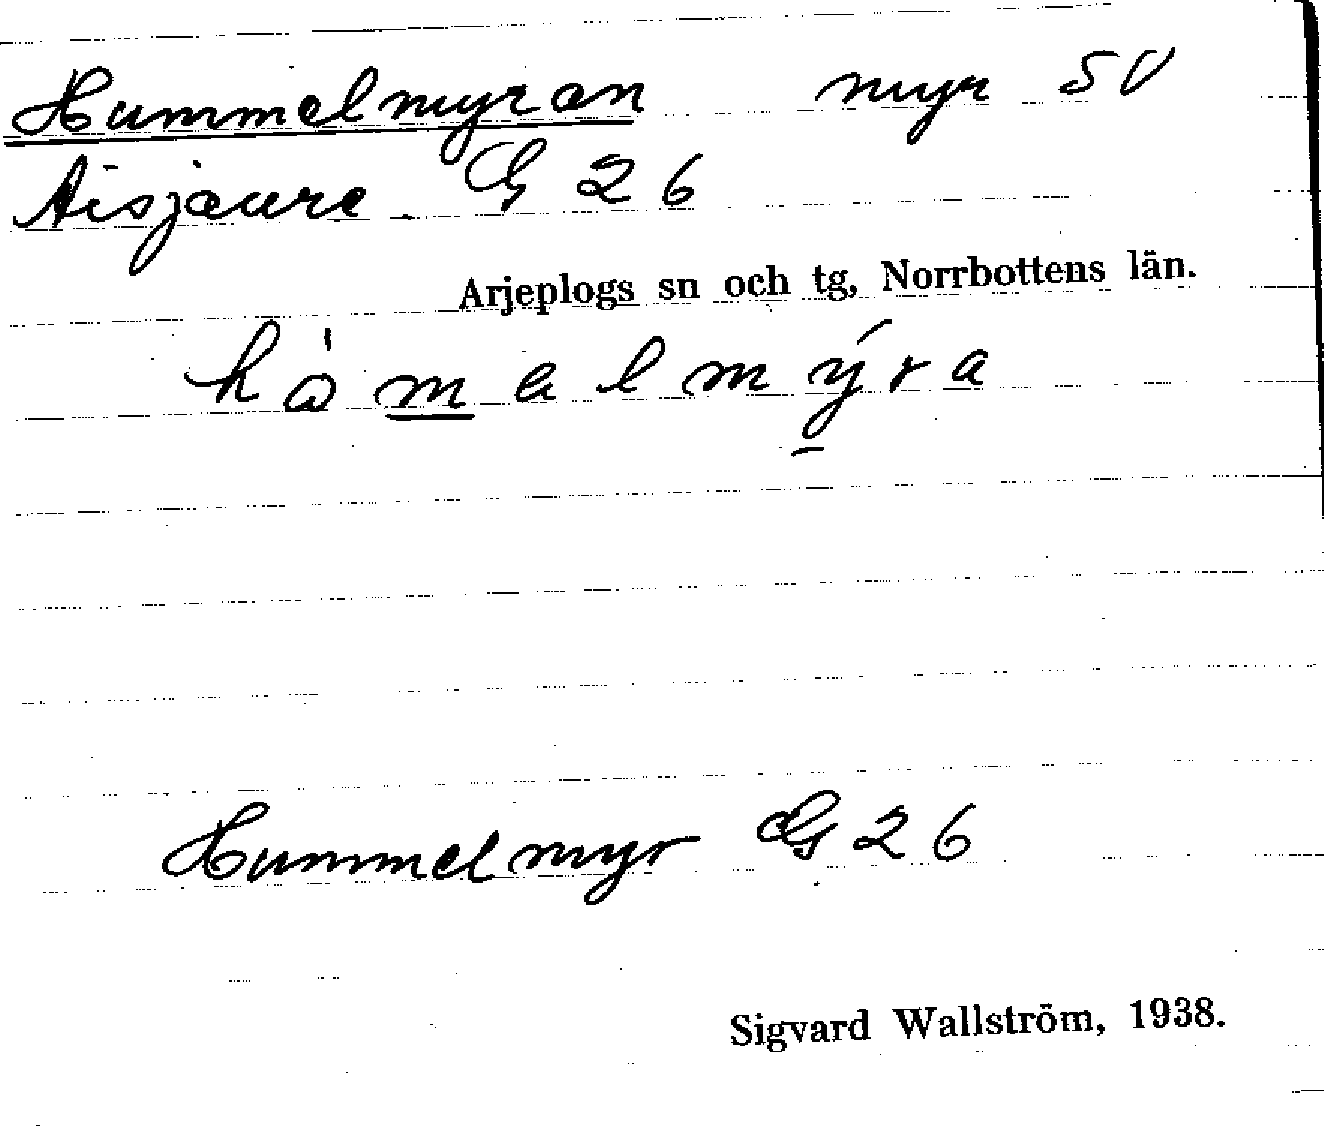 Hummelmyran myr SV
Aisjaure G 26
Arjeplogs sn och tg, Norrbottens län.
hò̀m̲elmýra
Hummelmyr G 26
Sigvard Wallström, 1938.